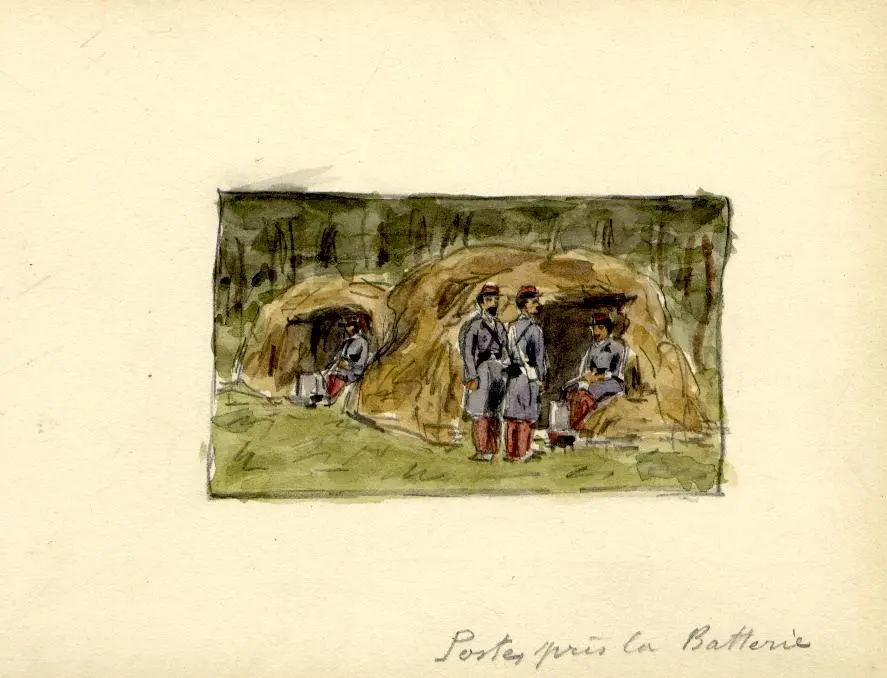 Postes près la Batterie